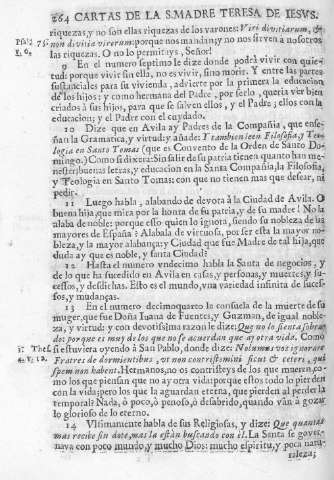 264 CARTAS DE LA S.MADRE TERESA DE IESVS.
riquezas,y no son ellas riquezas de los varones: Viri divitiarum, &
Psal. 75. non divitiæ virorum: porque nos mandan; y no nos sirven a nosotros
℣. 6. las riquezas. O no lo permitays, Señor!
9 En el numero septimo le dize donde podrà vivir con quie-
tud: porque vivir sin ella, no es vivir, sino morir. Y entre las partes
substanciales para su vivienda, advierte por la primera la educacion
de los hijos: y como hermana del Padre, por serlo, queria ver bien
criados à sus hijos, para que se salven ellos, y el Padre; ellos con la
educacion; y el Padre con el cuydado.
10 Dize que en Avila ay Padres de la Compañia, que ense-
ñan la Gramatica, y virtud; y añade: Y tambien leen Filosofia, y Teo-
logia en Santo Tomas (que es Convento de la Orden de Santo Do-
mingo.) Como si dixera: Sin salir de su patria tienen quanto han me-
nester: buenas letras, y educacion en la Santa Compañia, la Filosofia,
y Teologia en Santo Tomas: con que no tienen mas que desear, ni
pedir.
11 Luego habla, alabando de devota à la Ciudad de Avila. O
buena hija, que mira por la honra de su patria, y de su madre! No la
alaba de noble: porque esso quien lo ignora, siendo su nobleza de las
mayores de España? Alabala de virtuosa, por ser esta la mayor no-
bleza, y la mayor alabança; y Ciudad que fue Madre de tal hija, que
duda ay que es noble, y santa Ciudad?
12 Hasta el numero undezimo habla la Santa de negocios, y
de lo que ha sucedido en Avila en casas, y personas, y muertes, y su-
cessos, y desdichas. Esto es el mundo, una variedad infinita de suces-
sos, y mudanças.
13 En el numero decimoquarto la consuela de la muerte de su
muger, que fue Doña Iuana de Fuentes, y Guzman, de igual noble-
za, y virtud: y con devotissima razon le dize: Que no lo sienta sobra-
do: porque es muy de los que no se acuerdan que ay otra vida. Como
1. Thes. si estuviera oyendo à San Pablo, donde dize: Nolumus vos ignorare
4. ℣. 12. Fratres de dormientibus, ut non contristemini sicut & ceteri, qui
spem non habent. Hermanos, no os contristeys de los que mueren, co-
mo los que piensan que no ay otra vida: porque estos todo lo pierden
con la vida; pero los que la aguardan eterna, que pierden al perder la
temporal? Nada, ò poco, ò penoso, ò desabrido, quando vàn à gozar
lo glorioso de lo eterno.
14 Vltimamente habla de sus Religiosas, y dize: Que quantas
mas recibe sin dote, mas la estàn buscando con èl. La Santa se gover-
nava con poco mundo, y mucho Dios: mucho espiritu, y poca natu-
raleza;